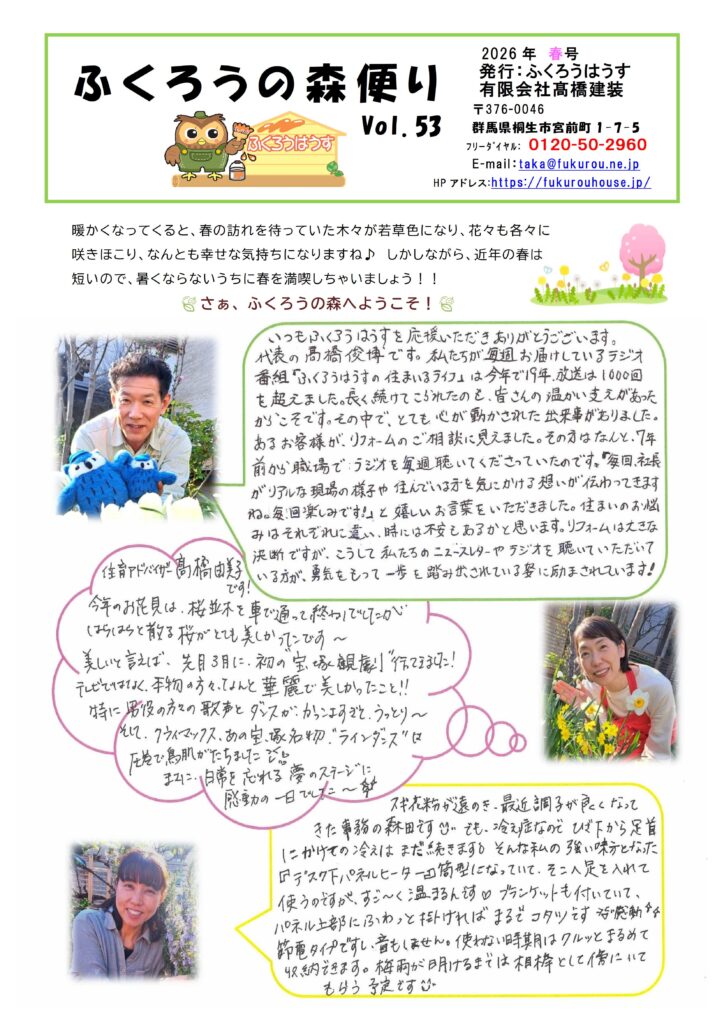 ふくろうの森便り
Vol.53
ふくろうはうす
2026年 春号
発行：ふくろうはうす
有限会社髙橋建装
〒376-0046
群馬県桐生市宮前町1-7-5
フリーダイヤル: 0120-50-2960
E-mail:taka@fukurou.ne.jp
HPアドレス:https://fukurouhouse.jp/
暖かくなってくると、春の訪れを待っていた木々が若草色になり、花々も各々に
咲きほこり、なんとも幸せな気持ちになりますね♪ しかしながら、近年の春は
短いので、暑くならないうちに春を満喫しちゃいましょう！！
さぁ、ふくろうの森へようこそ！
いつもふくろうはうすを応援いただきありがとうございます。
代表の髙橋俊博です。私たちが毎週お届けしているラジオ
番組『ふくろうはうすの住まいるライフ』は今年で19年、放送は1000回
を超えました。長く続けてこられたのも、皆さんの温かい支えがあった
からこそです。その中で、とても心が動かされた出来事がありました。
あるお客様が、リフォームのご相談に見えました。その方はなんと、7年
前から職場でラジオを毎週聴いてくださっていたのです。『毎回、社長
がリアルな現場の様子や住んでいる方を気にかける想いが伝わってきます
ね。毎回楽しみです!』と嬉しいお言葉をいただきました。住まいのお悩
みはそれぞれに違い、時には不安もあるかと思います。リフォームは大きな
決断ですが、こうして私たちのニュースレターやラジオを聴いていただいて
いる方が、勇気をもって一歩を踏み出されている姿に励まされています!
住育アドバイザー髙橋由美子
です!
今年のお花見は、桜並木を車で通って終わりでしたが
はらはらと散る桜がとても美しかったです〜
美しいと言えば、先月3月に、初の"宝塚観劇"行ってきました!
テレビではなく、本物の方々、なんと華麗で美しかったこと!!
特に男役の方々の歌声とダンスが、かっこよすぎて、うっとり〜
そして、クライマックス、あの宝塚名物、"ラインダンス"は
圧巻で鳥肌がたちました
まさに、日常を忘れる夢のステージに
感動の一日でした〜
スギ花粉が遠のき、最近調子が良くなって
きた事務の森田です でも、冷え症なのでひざ下から足首
にかけての冷えはまだ続きます そんな私の強い味方となった
『デスク下パネルヒーター』 筒型になっていて、そこへ足を入れて
使うのですが、すご〜く温まるんです♡ ブランケットも付いていて、
パネル上部にふわっと掛ければまるでコタツです 感動
節電タイプですし、音もしません。使わない時期はクルッとまるめて
収納できます。梅雨が明けるまでは相棒として傍にいて
もらう予定です